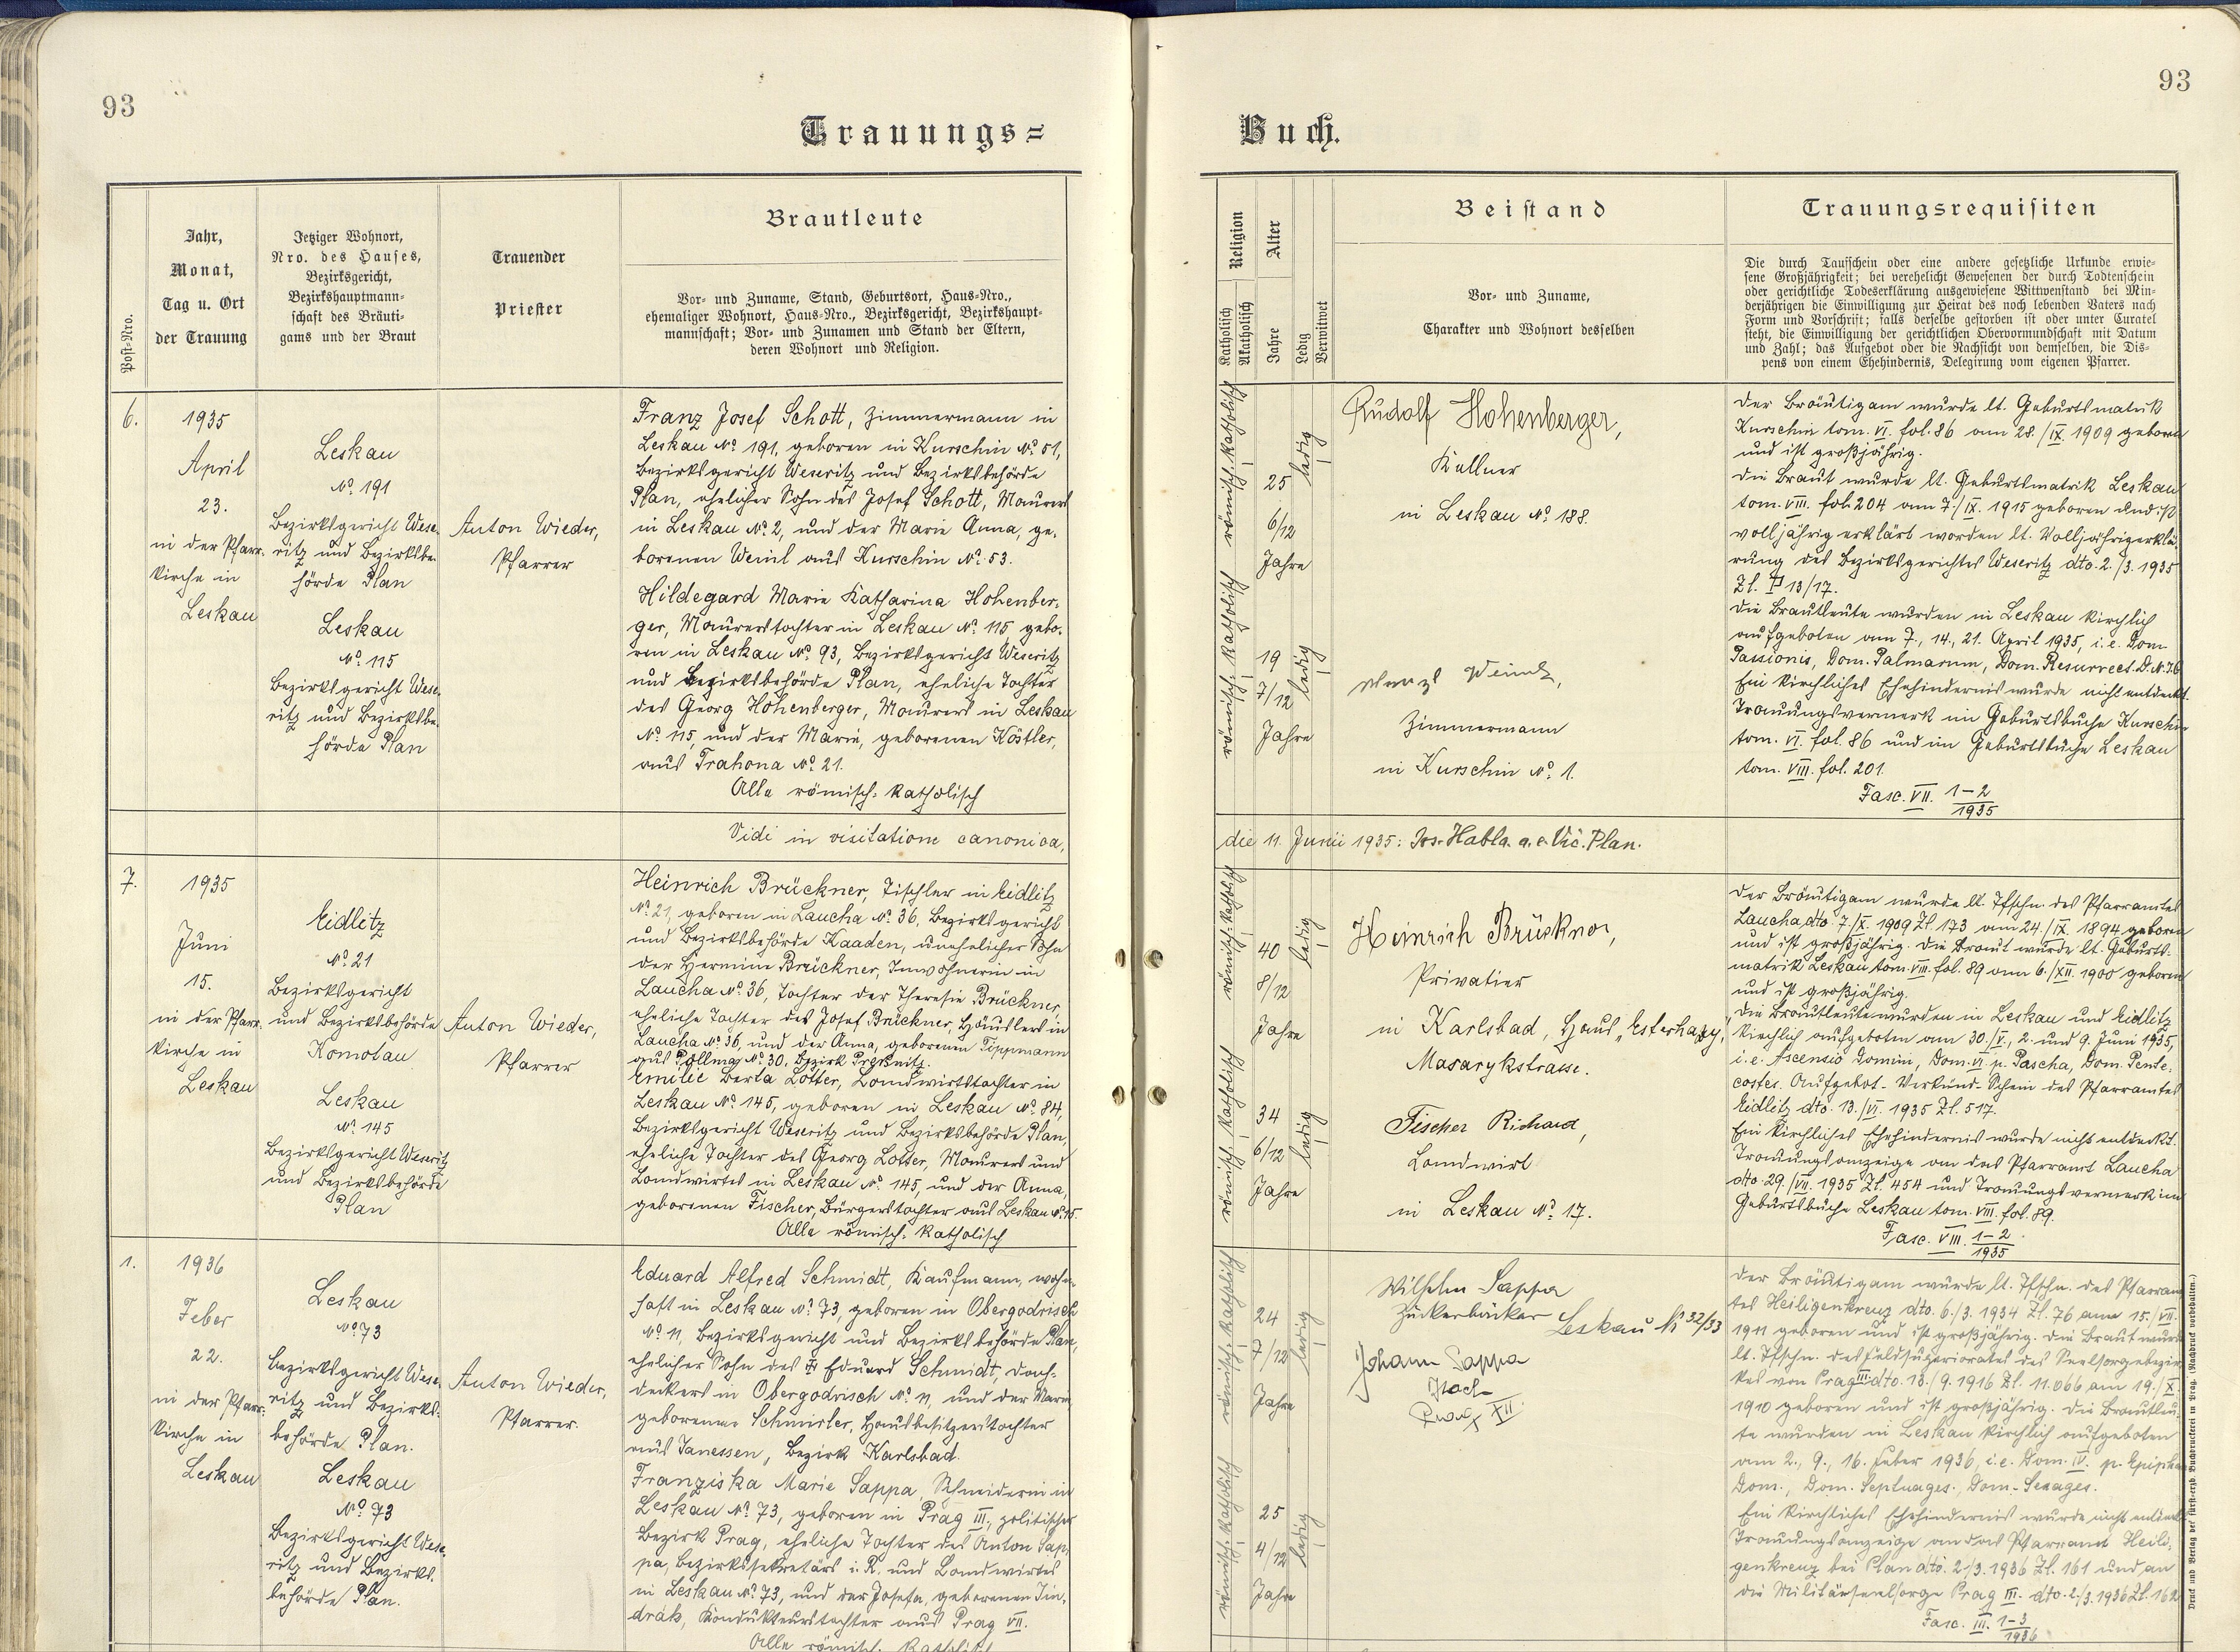 93
93
Trauungs=
Buch.
Post-Nro.
Jahr,
Monat,
Tag u. Ort
der Trauung
Jetziger Wohnort,
Nro. des Hauses,
Bezirksgericht,
Bezirkshauptmann-
schaft des Bräuti-
gams und der Braut
Trauender
Priester
Brautleute
Vor- und Zuname, Stand, Geburtsort, Haus-Nro.,
ehemaliger Wohnort, Haus-Nro., Bezirksgericht, Bezirkshaupt-
mannschaft; Vor- und Zunamen und Stand der Eltern,
deren Wohnort und Religion.
Religion
Katholisch
Akatholisch
Alter
Jahre
Ledig
Verwitwet
Beistand
Vor- und Zuname,
Charakter und Wohnort desselben
Trauungsrequisiten
Die durch Taufschein oder eine andere gesetzliche Urkunde erwie-
sene Großjährigkeit; bei verehelicht Gewesenen der durch Todtenschein
oder gerichtliche Todeserklärung ausgewiesene Wittwenstand bei Min-
derjährigen die Einwilligung zur Heirat des noch lebenden Vaters nach
Form und Vorschrift; falls derselbe gestorben ist oder unter Curatel
steht, die Einwilligung der gerichtlichen Obervormundschaft mit Datum
und Zahl; das Aufgebot oder die Nachsicht von demselben, die Dis-
pens von einem Ehehindernis, Delegirung vom eigenen Pfarrer.
6.
1935
April
23.
in der Pfarr-
kirche in
Leskau
Leskau
No. 191
Bezirksgericht Wese-
ritz und Bezirksbe-
hörde Plan
Leskau
No. 115
Bezirksgericht Wese-
ritz und Bezirksbe-
hörde Plan
Anton Wieder,
Pfarrer
Franz Josef Schott, Zimmermann in
Leskau No. 191, geboren in Kurschin No. 51,
Bezirksgericht Weseritz und Bezirksbehörde
Plan, ehelicher Sohn des Josef Schott, Maurers
in Leskau No. 2, und der Marie Anna, ge-
borenen Weinl aus Kurschin No. 53.
Hildegard Marie Katharina Hohenber-
ger, Maurerstochter in Leskau No. 115, gebo-
ren in Leskau No. 93, Bezirksgericht Weseritz
und Bezirksbehörde Plan, eheliche Tochter
des Georg Hohenberger, Maurers in Leskau
No. 115, und der Marie, geborenen Köstler,
aus Trahona No. 21.
Alle römisch-katholisch
römisch-katholisch
25
6/12
Jahre
ledig
römisch-katholisch
19
7/12
Jahre
ledig
Rudolf Hohenberger,
Kellner
in Leskau No. 188.
Zimmermann
in Kurschin No. 1.
Der Bräutigam wurde lt. Geburtsmatrik
Kurschin tom. VI. fol. 86 am 28./IX. 1909 geboren
und ist großjährig.
Die Braut wurde lt. Geburtsmatrik Leskau
tom. VIII. fol. 204 am 7./IX. 1915 geboren und ist
volljährig erklärt worden lt. Volljährigerklä-
rung des Bezirksgerichtes Weseritz dto. 2./3. 1935
Zl. P 13/17.
Die Brautleute wurden in Leskau kirchlich
aufgeboten am 7., 14., 21. April 1935, i. e. Dom.
Passionis, Dom. Palmarum, Dom. Resurrect. D. N. J.
Ein kirchliches Ehehindernis wurde nicht entdeckt.
Trauungsvermerk im Geburtsbuche Kurschin
tom. VI. fol. 86 und im Geburtsbuche Leskau
tom. VIII. fol. 201.
Fasc. VII. 1-2
1935
Vidi in visitatione canonica,
die 11. Junii 1935: Jos. Habla. a. e. Vic. Plan.
7.
1935
Juni
15.
in der Pfarr-
kirche in
Leskau
Eidlitz
No. 21
Bezirksgericht
und Bezirksbehörde
Komotau
Leskau
No. 145
Bezirksgericht Weseritz
und Bezirksbehörde
Plan
Anton Wieder,
Pfarrer
Heinrich Brückner, Tischler in Eidlitz
No. 21, geboren in Laucha No. 36, Bezirksgericht
und Bezirksbehörde Kaaden, unehelicher Sohn
der Hermine Brückner, Inwohnerin in
Laucha No. 36, Tochter der Theresie Brückner,
eheliche Tochter des Josef Brückner, Häuslers in
Laucha No. 36, und der Anna, geborenen Tippmann
aus Pöllma No. 30, Bezirk Preßnitz.
Emilie Berta Lotter, Landwirtstochter in
Leskau No. 145, geboren in Leskau No. 84,
Bezirksgericht Weseritz und Bezirksbehörde Plan,
eheliche Tochter des Georg Lotter, Maurers und
Landwirtes in Leskau No. 145, und der Anna,
geborenen Fischer, Bürgerstochter aus Leskau No. 15.
Alle römisch-katholisch
römisch-katholisch
40
8/12
Jahre
ledig
römisch-katholisch
34
6/12
Jahre
ledig
Heinrich Brückner,
Privatier
in Karlsbad, Haus „Esterhazy",
Masarykstrasse.
Fischer Richard,
Landwirt
in Leskau No. 17.
Der Bräutigam wurde lt. Tfschn. des Pfarramtes
Laucha dto 7./X. 1909 Zl. 173 am 24./IX. 1894 geboren
und ist großjährig. Die Braut wurde lt. Geburts-
matrik Leskau tom. VIII. fol. 89 am 6./XII. 1900 geboren
und ist großjährig.
Die Brautleute wurden in Leskau und Eidlitz
kirchlich aufgeboten am 30./V., 2. und 9. Juni 1935,
i. e. Ascensio Domini, Dom. VI p. Pascha, Dom. Pente-
costes. Aufgebot-Verkünd-Schein des Pfarramtes
Eidlitz dto. 13./VI. 1935 Zl. 517.
Ein kirchliches Ehehindernis wurde nicht entdeckt.
Trauungsanzeige an das Pfarramt Laucha
dto. 29./VII. 1935 Zl. 454 und Trauungsvermerk im
Geburtsbuche Leskau tom. VIII. fol. 89.
Fasc. VIII. 1-2
1935
1.
1936
Feber
22.
in der Pfarr-
kirche in
Leskau
Leskau
No. 73
Bezirksgericht Wese-
ritz und Bezirks-
behörde Plan.
Leskau
No. 73
Bezirksgericht Wese-
ritz und Bezirks-
behörde Plan.
Anton Wieder,
Pfarrer.
Eduard Alfred Schmidt, Kaufmann, wohn-
haft in Leskau No. 73, geboren in Obergodrisch
No. 11, Bezirksgericht und Bezirksbehörde Plan,
ehelicher Sohn des Eduard Schmidt, Dach-
deckers in Obergodrisch No. 11, und der Marie,
geborenen Schmirler, Hausbesitzerstochter
aus Janessen, Bezirk Karlsbad.
Franziska Marie Sappa, Schneiderin in
Leskau No. 73, geboren in Prag III., politischer
Bezirk Prag, eheliche Tochter des Anton Sap-
pa, Bezirkssekretärs i. R. und Landwirtes
in Leskau No. 73, und der Josefa, geborenen Jin-
drák, Kondukteurstochter aus Prag VII.
Alle römisch-katholisch
römisch-katholisch
24
7/12
Jahre
ledig
römisch-katholisch
25
4/12
Jahre
ledig
Wilhelm Sappa
Zuckerbäcker Leskau No 32/33
Johann Sappa
XII.
Der Bräutigam wurde lt. Tfschn. des Pfarram-
tes Heiligenkreuz dto. 6./3. 1934 Zl. 76 am 15./VII.
1911 geboren und ist großjährig. Die Braut wurde
lt. Tfschn. des Feldsuperiorates des Seelsorgebezir-
kes von Prag III dto. 13./9. 1916 Zl. 11.066 am 19./X.
1910 geboren und ist großjährig. Die Brautleu-
te wurden in Leskau kirchlich aufgeboten
am 2., 9., 16. Feber 1936, i. e. Dom. IV. p. Epiph.
Dom., Dom. Septuages., Dom. Sexages.
Ein kirchliches Ehehindernis wurde nicht entdeckt
Trauungsanzeige an das Pfarramt Heili-
genkreuz bei Plan dto. 2./3. 1936 Zl. 161 und an
die Militärseelsorge Prag III. dto. 2./3. 1936 Zl. 162
Fasc. III. 1-3
1936
Druck und Verlag der fürst-erzb. Buchdruckerei in Prag. (Nachdruck vorbehalten.)